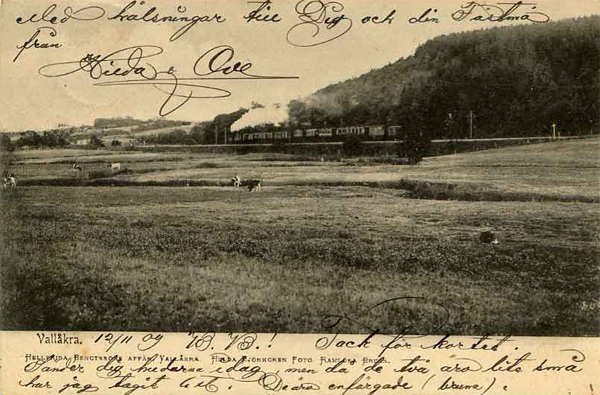 Med hälsningar till Dig och din Fästmö
från
Hilda & Ove
Vallåkra. 12/11 04 V. V.! Tack för kortet!
Hellfrida Bengtssons affär, Vallåkra. Hilda Björkgren Foto. Ramlösa Brunn.
Sänder dig hundarna idag, men då de två äro lite små
har jag tagit 6 st. De äro enfärgade (bruna).